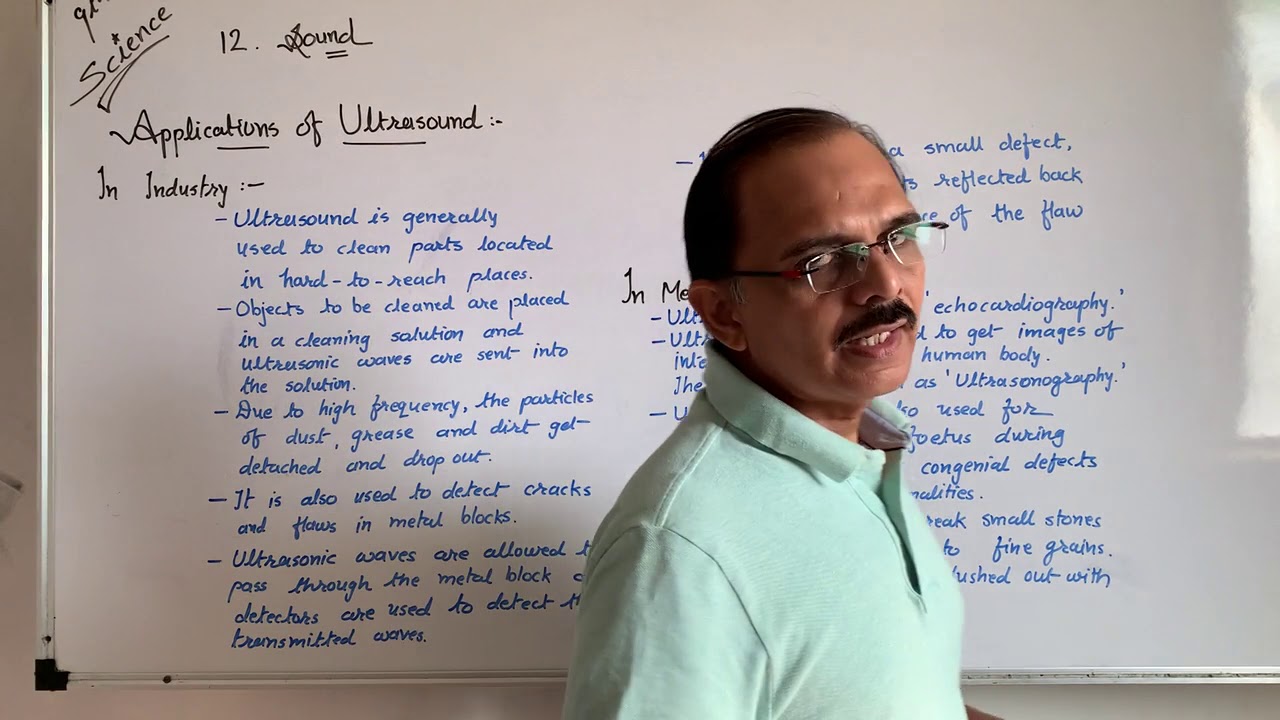 Science
12. Sound
Applications of Ultrasound :-
In Industry :-
- Ultrasound is generally
used to clean parts located
in hard-to-reach places.
- Objects to be cleaned are placed
in a cleaning solution and
ultrasonic waves are sent into
the solution.
- Due to high frequency, the particles
of dust, grease and dirt get
detached and drop out.
- It is also used to detect cracks
and flaws in metal blocks.
- Ultrasonic waves are allowed
pass through the metal block
detectors are used to detect
transmitted waves.
- a small defect,
reflected back
of the flaw
In
- 'echocardiography.'
- to get images of
human body.
The as 'Ultrasonography.'
- used for
foetus during
congenial defects
small stones
to fine grains.
out with